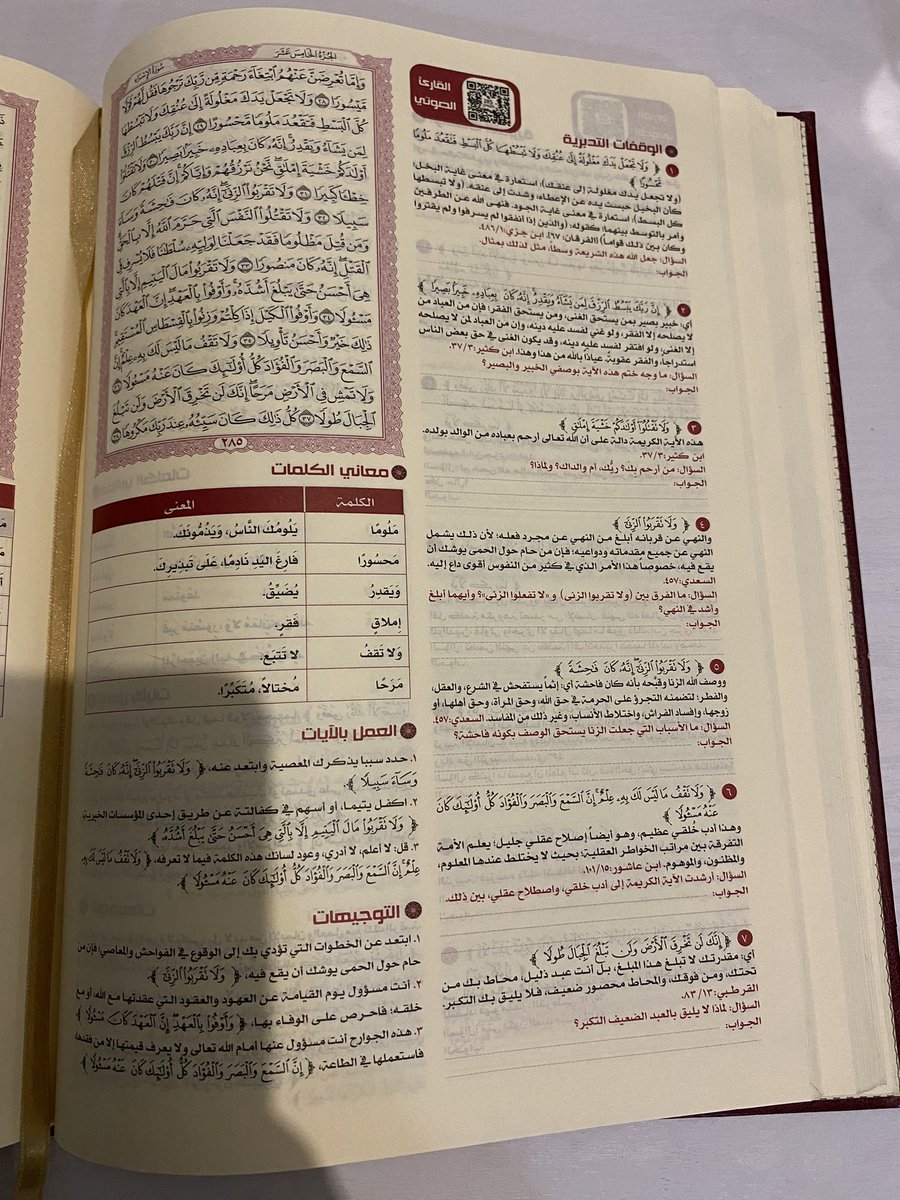 الجزء الخامس عشر
سورة الإسراء
وَإِمَّا تُعْرِضَنَّ عَنْهُمُ ابْتِغَاءَ رَحْمَةٍ مِّن رَّبِّكَ تَرْجُوهَا فَقُل لَّهُمْ قَوْلًا
مَّيْسُورًا ٢٨ وَلَا تَجْعَلْ يَدَكَ مَغْلُولَةً إِلَىٰ عُنُقِكَ وَلَا تَبْسُطْهَا
كُلَّ الْبَسْطِ فَتَقْعُدَ مَلُومًا مَّحْسُورًا ٢٩ إِنَّ رَبَّكَ يَبْسُطُ الرِّزْقَ
لِمَن يَشَاءُ وَيَقْدِرُ إِنَّهُ كَانَ بِعِبَادِهِ خَبِيرًا بَصِيرًا ٣٠ وَلَا تَقْتُلُوا
أَوْلَادَكُمْ خَشْيَةَ إِمْلَاقٍ نَّحْنُ نَرْزُقُهُمْ وَإِيَّاكُمْ إِنَّ قَتْلَهُمْ كَانَ
خِطْئًا كَبِيرًا ٣١ وَلَا تَقْرَبُوا الزِّنَىٰ إِنَّهُ كَانَ فَاحِشَةً وَسَاءَ
سَبِيلًا ٣٢ وَلَا تَقْتُلُوا النَّفْسَ الَّتِي حَرَّمَ اللَّهُ إِلَّا بِالْحَقِّ
وَمَن قُتِلَ مَظْلُومًا فَقَدْ جَعَلْنَا لِوَلِيِّهِ سُلْطَانًا فَلَا يُسْرِف فِّي
الْقَتْلِ إِنَّهُ كَانَ مَنصُورًا ٣٣ وَلَا تَقْرَبُوا مَالَ الْيَتِيمِ إِلَّا بِالَّتِي
هِيَ أَحْسَنُ حَتَّىٰ يَبْلُغَ أَشُدَّهُ وَأَوْفُوا بِالْعَهْدِ إِنَّ الْعَهْدَ كَانَ
مَسْئُولًا ٣٤ وَأَوْفُوا الْكَيْلَ إِذَا كِلْتُمْ وَزِنُوا بِالْقِسْطَاسِ الْمُسْتَقِيمِ
ذَٰلِكَ خَيْرٌ وَأَحْسَنُ تَأْوِيلًا ٣٥ وَلَا تَقْفُ مَا لَيْسَ لَكَ بِهِ عِلْمٌ إِنَّ
السَّمْعَ وَالْبَصَرَ وَالْفُؤَادَ كُلُّ أُولَٰئِكَ كَانَ عَنْهُ مَسْئُولًا ٣٦
وَلَا تَمْشِ فِي الْأَرْضِ مَرَحًا إِنَّكَ لَن تَخْرِقَ الْأَرْضَ وَلَن تَبْلُغَ
الْجِبَالَ طُولًا ٣٧ كُلُّ ذَٰلِكَ كَانَ سَيِّئُهُ عِندَ رَبِّكَ مَكْرُوهًا ٣٨
٢٨٥
القارئ
الصوتي
الوقفات التدبرية
١ ﴿ وَلَا تَجْعَلْ يَدَكَ مَغْلُولَةً إِلَىٰ عُنُقِكَ وَلَا تَبْسُطْهَا كُلَّ الْبَسْطِ فَتَقْعُدَ مَلُومًا
مَّحْسُورًا ﴾
(ولا تجعل يدك مغلولة إلى عنقك)، استعارة في معنى غاية البخل؛
كأن البخيل حبست يده عن الإعطاء، وشدت إلى عنقه. (ولا تبسطها
كل البسط) استعارة في معنى غاية الجود. فنهى الله عن الطرفين
وأمر بالتوسط بينهما؛ كقوله: (والذين إذا أنفقوا لم يسرفوا ولم يقتروا
وكان بين ذلك قواماً) [الفرقان: ٦٧]. ابن جزي:٤٨٦/١.
السؤال: جعل الله هذه الشريعة وسطاً، مثل لذلك بمثال.
الجواب:
٢ ﴿ إِنَّ رَبَّكَ يَبْسُطُ الرِّزْقَ لِمَن يَشَاءُ وَيَقْدِرُ إِنَّهُ كَانَ بِعِبَادِهِ خَبِيرًا بَصِيرًا ﴾
أي: خبير بصير بمن يستحق الغنى، ومن يستحق الفقر؛ فإن من العباد من
لا يصلحه إلا الفقر، ولو غني لفسد عليه دينه، وإن من العباد لمن لا يصلحه
إلا الغنى، ولو افتقر لفسد عليه دينه، وقد يكون الغنى في حق بعض الناس
استدراجاً، والفقر عقوبة، عياذاً بالله من هذا وهذا. ابن كثير:٣٧/٣.
السؤال: ما وجه ختم هذه الآية بوصفي الخبير والبصير؟
الجواب:
٣ ﴿ وَلَا تَقْتُلُوا أَوْلَادَكُمْ خَشْيَةَ إِمْلَاقٍ ﴾
هذه الآية الكريمة دالة على أن الله تعالى أرحم بعباده من الوالد بولده.
ابن كثير:٣٧/٣.
السؤال: من أرحم بك؟ ربُّك، أم والداك؟ ولماذا؟
الجواب:
٤ ﴿ وَلَا تَقْرَبُوا الزِّنَىٰ ﴾
والنهي عن قربانه أبلغ من النهي عن مجرد فعله؛ لأن ذلك يشمل
النهي عن جميع مقدماته ودواعيه؛ فإن من حام حول الحمى يوشك أن
يقع فيه، خصوصاً هذا الأمر الذي في كثير من النفوس أقوى داع إليه.
السعدي:٤٥٧.
السؤال: ما الفرق بين (ولا تقربوا الزنى) و «لا تفعلوا الزنى»؟ وأيهما أبلغ
وأشد في النهي؟
الجواب:
٥ ﴿ وَلَا تَقْرَبُوا الزِّنَىٰ إِنَّهُ كَانَ فَاحِشَةً ﴾
ووصف الله الزنا وقبَّحه بأنه كان فاحشة أي: إثماً يستفحش في الشرع، والعقل،
والفطر؛ لتضمنه التجرؤ على الحرمة في حق الله، وحق المرأة، وحق أهلها، أو
زوجها، وإفساد الفراش، واختلاط الأنساب، وغير ذلك من المفاسد. السعدي:٤٥٧.
السؤال: ما الأسباب التي جعلت الزنا يستحق الوصف بكونه فاحشة؟
الجواب:
٦ ﴿ وَلَا تَقْفُ مَا لَيْسَ لَكَ بِهِ عِلْمٌ إِنَّ السَّمْعَ وَالْبَصَرَ وَالْفُؤَادَ كُلُّ أُولَٰئِكَ كَانَ
عَنْهُ مَسْئُولًا ﴾
وهذا أدب خلقي عظيم، وهو أيضاً إصلاح عقلي جليل؛ يعلم الأمة
التفرقة بين مراتب الخواطر العقلية؛ بحيث لا يختلط عندها المعلوم،
والمظنون، والموهوم. ابن عاشور:١٠١/١٥.
السؤال: أرشدت الآية الكريمة إلى أدب خلقي، واصطلاح عقلي، بين ذلك.
الجواب:
٧ ﴿ إِنَّكَ لَن تَخْرِقَ الْأَرْضَ وَلَن تَبْلُغَ الْجِبَالَ طُولًا ﴾
أي: مقدرتك لا تبلغ هذا المبلغ، بل أنت عبد ذليل، محاط بك من
تحتك، ومن فوقك، والمحاط محصور ضعيف، فلا يليق بك التكبر.
القرطبي:٨٣/١٣.
السؤال: لماذا لا يليق بالعبد الضعيف التكبر؟
الجواب:
معاني الكلمات
الكلمة المعنى
مَلُومًا يَلُومُكَ النَّاسُ، وَيَذُمُّونَكَ.
مَحسُورًا فَارِغَ اليَدِ نَادِمًا، عَلَى تَبذِيرِكَ.
وَيَقدِرُ يُضَيِّقُ.
إِملاقٍ فَقرٍ.
وَلا تَقفُ لا تَتبَع.
مَرَحًا مُختالاً، مُتَكَبِّرًا.
العمل بالآيات
١. حدد سببا يذكرك المعصية وابتعد عنه، ﴿ وَلَا تَقْرَبُوا الزِّنَىٰ إِنَّهُ كَانَ فَاحِشَةً
وَسَاءَ سَبِيلًا ﴾.
٢. اكفل يتيما، أو أسهم في كفالتة عن طريق إحدى المؤسسات الخيرية،
﴿ وَلَا تَقْرَبُوا مَالَ الْيَتِيمِ إِلَّا بِالَّتِي هِيَ أَحْسَنُ حَتَّىٰ يَبْلُغَ أَشُدَّهُ ﴾
٣. قل: لا أعلم، لا أدري، وعود لسانك هذه الكلمة فيما لا تعرفه، ﴿ وَلَا تَقْفُ مَا لَيْسَ لَكَ بِهِ
عِلْمٌ إِنَّ السَّمْعَ وَالْبَصَرَ وَالْفُؤَادَ كُلُّ أُولَٰئِكَ كَانَ عَنْهُ مَسْئُولًا ﴾.
التوجيهات
١. ابتعد عن الخطوات التي تؤدي بك إلى الوقوع في الفواحش والمعاصي؛ فإن من
حام حول الحمى يوشك أن يقع فيه، ﴿ وَلَا تَقْرَبُوا الزِّنَىٰ ﴾
٢. أنت مسؤول يوم القيامة عن العهود والعقود التي عقدتها مع الله، أو مع
خلقه؛ فاحرص على الوفاء بها، ﴿ وَأَوْفُوا بِالْعَهْدِ إِنَّ الْعَهْدَ كَانَ مَسْئُولًا ﴾
٣. هذه الجوارح أنت مسؤول عنها أمام الله تعالى ولا يعرف قيمتها إلا من فقدها،
فاستعملها في الطاعة، ﴿ إِنَّ السَّمْعَ وَالْبَصَرَ وَالْفُؤَادَ كُلُّ أُولَٰئِكَ كَانَ عَنْهُ مَسْئُولًا ﴾